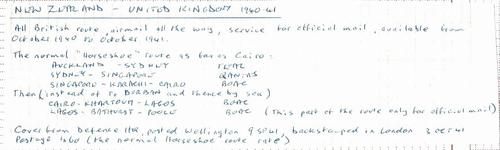 NEW ZEALAND - UNITED KINGDOM 1940-41
All British route, airmail all the way, service for official mail, available from
October 1940 to October 1941.
The normal "Horseshoe" route as far as Cairo:
AUCKLAND - SYDNEY TEAL
SYDNEY - SINGAPORE QANTAS
SINGAPORE - KARACHI - CAIRO BOAC
Then (instead of to DURBAN and thence by sea)
CAIRO - KHARTOUM - LAGOS BOAC
LAGOS - BATHURST - POOLE BOAC (This part of the route only for official mail)
Cover from Defence HQ, posted Wellington 9 SP 41, backstamped in London 3 OC 41
Postage (the normal Horseshoe route rate)